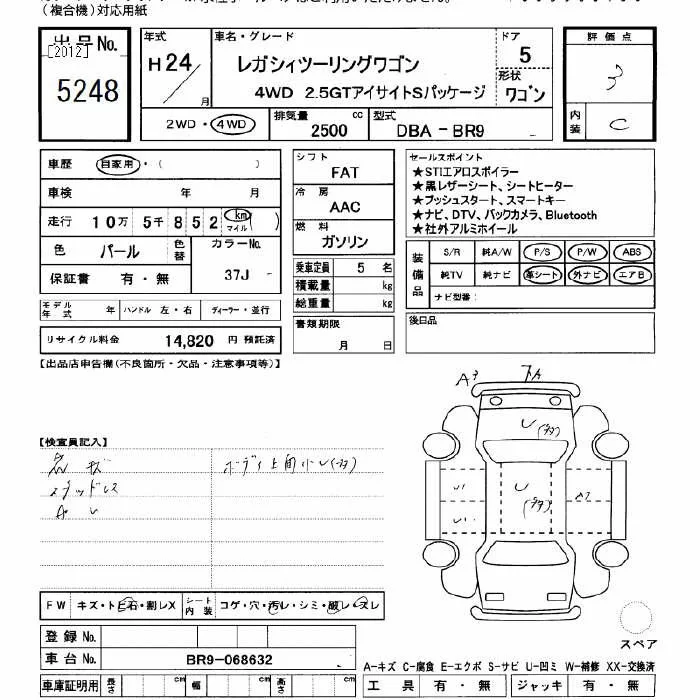 （複合機）対応用紙
出品No. [2012] 5248
年式 H24/ 月
車名・グレード レガシィツーリングワゴン
4WD 2.5GTアイサイトSパッケージ
ドア 5
形状 ワゴン
評価点 3
内装 C
2WD・4WD 排気量 2500 cc 型式 DBA - BR9 -
車歴 自家用・( )
車検 年 月
走行 10万 5千 852 km マイル ( )
色 パール 色替 カラーNo. 37J
保証書 有・無
モデル年式 年 ハンドル 左・右 ディーラー・並行
リサイクル料金 14,820 円 預託済
シフト FAT
冷房 AAC
燃料 ガソリン
乗車定員 5 名
積載量 kg
総重量 kg
書類期限 月 日
セールスポイント
★STIエアロスポイラー
★黒レザーシート、シートヒーター
★プッシュスタート、スマートキー
★ナビ、DTV、バックカメラ、Bluetooth
★社外アルミホイール
装備品 S/R 純A/W P/S P/W ABS
純TV 純ナビ 革シート 外ナビ エアB
ナビ型番：
後日品
【出品店申告欄(不良箇所・欠品・注意事項等)】
【検査員記入】
スタッドレス
A U
ボディ上面小U(多)
A3
U (多)
U1
U
(多)
A2
U1
FW キズ・トビ石・割レX シート内装 コゲ・穴・汚レ・シミ・破レ・スレ
登録No.
車台No. BR9-068632
スペア
A-キズ C-腐食 E-エクボ S-サビ U-凹ミ W-補修 XX-交換済
車庫証明用 長さ cm 幅 cm 高さ cm 工具 有・無 ジャッキ 有・無